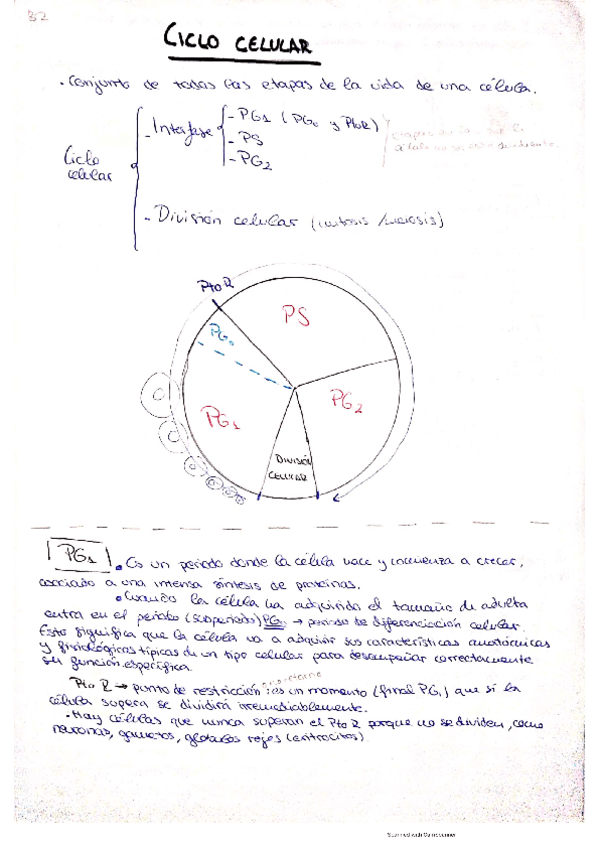 32
CICLO CELULAR
· Conjunto de todas las etapas de la vida de una célula.
Ciclo celular
- Interfase
- PG1 (PG0 y PtoR)
- PS
- PG2
etapas en las que la
célula no se está dividiendo.
- División celular (mitosis/meiosis)
Pto R
PS
PG0
PG1
PG2
DIVISIÓN
CELULAR
PG1 • Es un periodo donde la célula nace y comienza a crecer,
asociado a una intensa síntesis de proteínas.
• Cuando la célula ha adquirido el tamaño de adulta
entra en el periodo (subperiodo) PG0 → periodo de diferenciación celular.
Esto significa que la célula va a adquirir sus características anatómicas
y fisiológicas típicas de un tipo celular para desempeñar correctamente
su función específica.
Pto R → punto de restricción: es un momento (final PG1) que si la
célula supera se dividirá irremediablemente.
· Hay células que nunca superan el Pto R porque no se dividen, como
neuronas, gametos, glóbulos rojos (eritrocitos)
Scanned with CamScanner